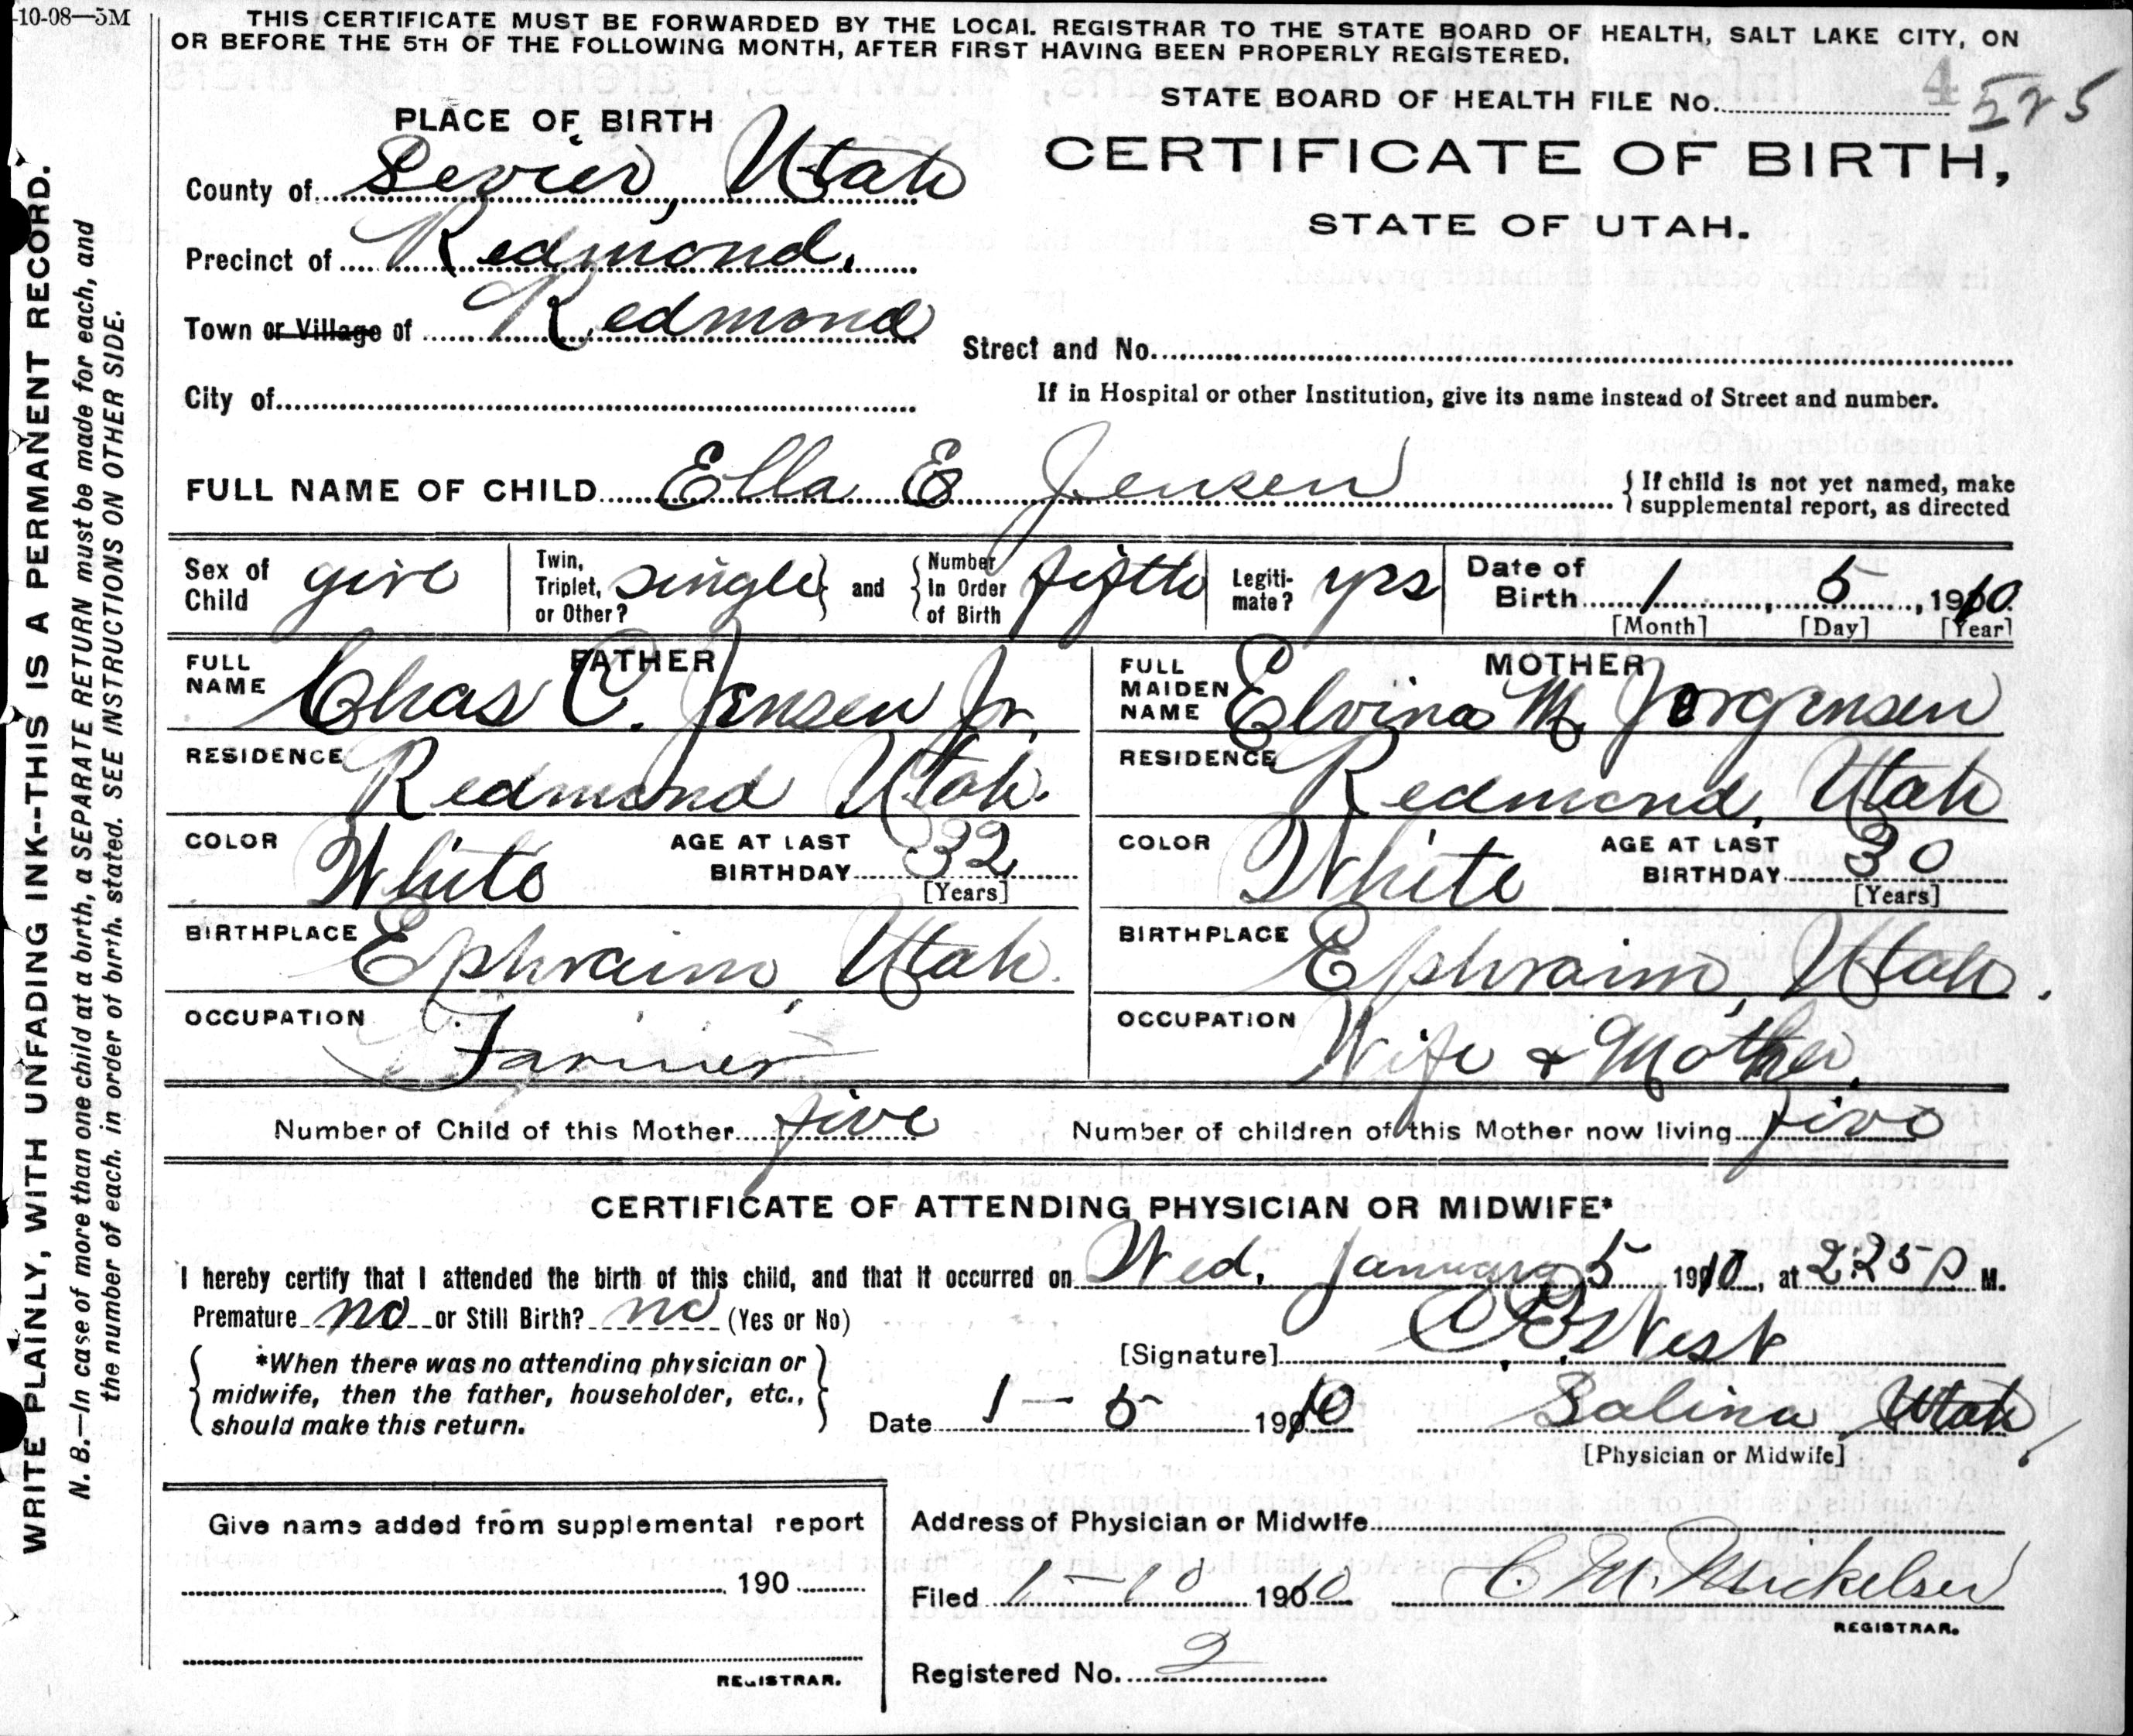 -10-08—5M
THIS CERTIFICATE MUST BE FORWARDED BY THE LOCAL REGISTRAR TO THE STATE BOARD OF HEALTH, SALT LAKE CITY, ON
OR BEFORE THE 5TH OF THE FOLLOWING MONTH, AFTER FIRST HAVING BEEN PROPERLY REGISTERED.
WRITE PLAINLY, WITH UNFADING INK--THIS IS A PERMANENT RECORD.
N. B.—In case of more than one child at a birth, a SEPARATE RETURN must be made for each, and
the number of each. in order of birth. stated. SEE INSTRUCTIONS ON OTHER SIDE.
STATE BOARD OF HEALTH FILE No. 4 525
PLACE OF BIRTH
CERTIFICATE OF BIRTH,
STATE OF UTAH.
County of Sevier, Utah
Precinct of Redmond.
Town or Village of Redmond
Street and No.
City of
If in Hospital or other Institution, give its name instead of Street and number.
FULL NAME OF CHILD Ella E Jensen
If child is not yet named, make
supplemental report, as directed
Sex of Child girl
Twin, Triplet, or Other? single and Number In Order of Birth fifth
Legiti-mate? yes
Date of Birth 1, 5, 1910.
[Month] [Day] [Year]
FATHER
FULL NAME Chas C. Jensen Jr.
RESIDENCE Redmond Utah.
COLOR White AGE AT LAST BIRTHDAY 32
[Years]
BIRTHPLACE Ephraim, Utah.
OCCUPATION Farmer
MOTHER
FULL MAIDEN NAME Elvina M Jorgensen
RESIDENCE Redmond, Utah
COLOR White AGE AT LAST BIRTHDAY 30
[Years]
BIRTHPLACE Ephraim, Utah.
OCCUPATION Wife & Mother.
Number of Child of this Mother five Number of children of this Mother now living five
CERTIFICATE OF ATTENDING PHYSICIAN OR MIDWIFE*
I hereby certify that I attended the birth of this child, and that it occurred on Wed. January 5 1910, at 2:25 P M.
Premature no or Still Birth? no (Yes or No)
[Signature] West
*When there was no attending physician or
midwife, then the father, householder, etc.,
should make this return.
Date 1 - 5 1910 Salina Utah.
[Physician or Midwife]
Give name added from supplemental report
190
REGISTRAR.
Address of Physician or Midwife
Filed 1-10 1910 C. M. Mickelsen
REGISTRAR.
Registered No. 2